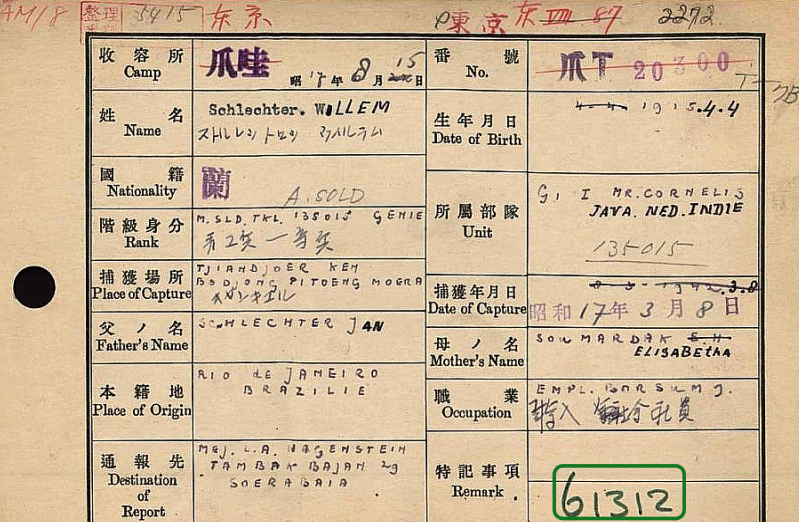 AM/8 整理 5415 东京 東京 87 2272
收容所 Camp 爪哇 昭17年8月15日
番號 No. 爪T 20300
姓名 Name Schlechter. WILLEM
生年月日 Date of Birth 1915.4.4
國籍 Nationality 蘭 A. SOLD
所屬部隊 Unit G. I MR. CORNELIS
JAVA. NED. INDIE
135015
階級身分 Rank M. SLD. TKL. 135015 GENIE
捕獲場所 Place of Capture TJIANDJOER KEM
BODJONG PITOENG MOERA
捕獲年月日 Date of Capture 1942.3.8
昭和17年3月8日
父ノ名 Father's Name SCHLECHTER JAN
母ノ名 Mother's Name SOUMARDAK E.H
ELISABETHA
本籍地 Place of Origin RIO de JANEIRO
BRAZILIE
職業 Occupation EMPL. BORSUMJ.
社員
通報先 Destination of Report MEJ. L.A. HAGENSTEIN
TAMBAK BAJAN 29
SOERABAIA
特記事項 Remark.
61312